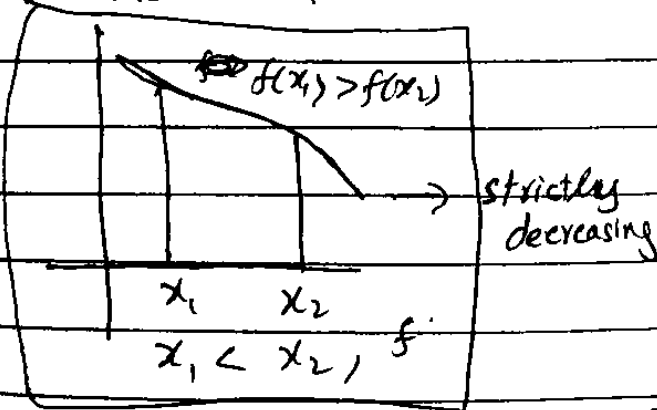 f(x₁) > f(x₂)
strictly
decreasing
x₁ x₂
x₁ < x₂, f